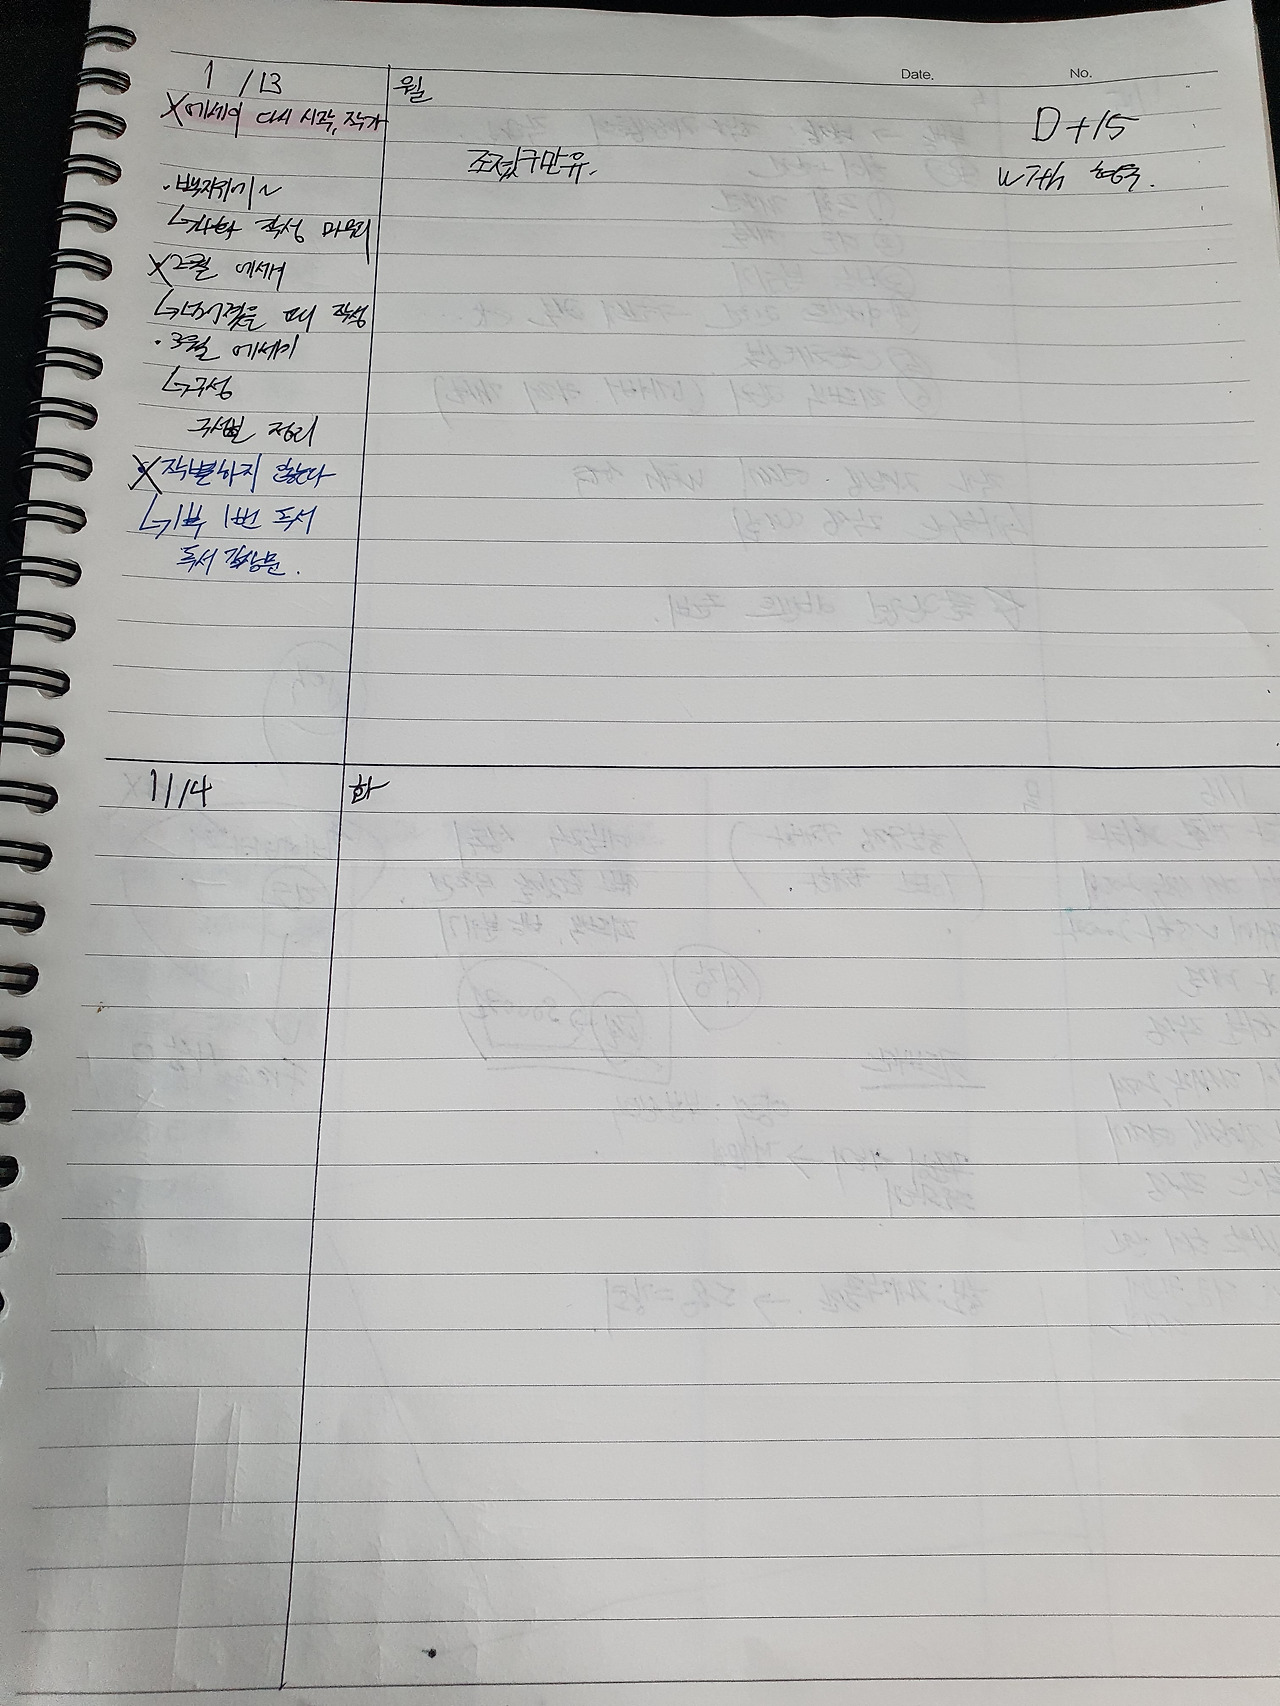 Date. No.
1/13 월
X에세이 다시 시작, 작가
D+15
조졌구만유.
with
· 백자쓰기~
↳ 작성 마무리
X 2월 에세이
↳ 때 작성
· 3월 에세이
↳구성
구성별 정리
X 작별하지 않는다
↳1부 1번 독서
독서 감상문.
1/14 화